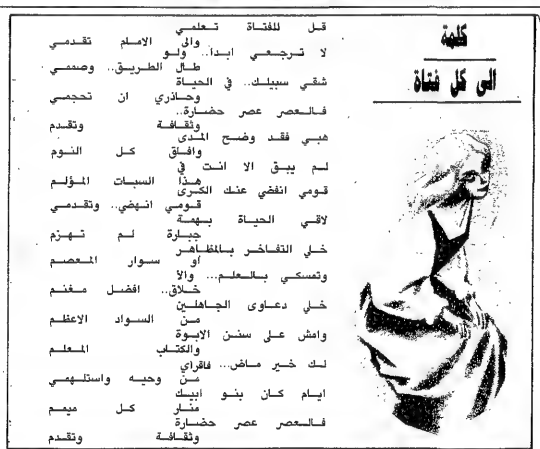 كلمة
الى كل فتاة
قل للفتاة تعلمي
والى الامام تقدمي
لا ترجعي ابدا.. ولو
طال الطريق.. وصممي
شقي سبيلك.. في الحياة
وحاذري ان تحجمي
فالعصر عصر حضارة..
وثقافة وتقدم
هبي فقد وضح المدى
وافاق كل النوم
لم يبق الا انت في
هذا السبات المؤلم
قومي انفضي عنك الكرى
قومي انهضي.. وتقدمي
لاقي الحياة بهمة
جبارة لم تهزم
خلي التفاخر بالمظاهر
او سوار المعصم
وتمسكي بالعلم... والا
خلاق.. افضل مغنم
خلي دعاوى الجاهلين
من السواد الاعظم
وامش على سنن الابوة
والكتاب المعلم
لك خير ماض... فاقراي
من وحيه واستلهمي
ايام كان بنو ابيك
منار كل ميمم
فالعصر عصر حضارة
وثقافة وتقدم